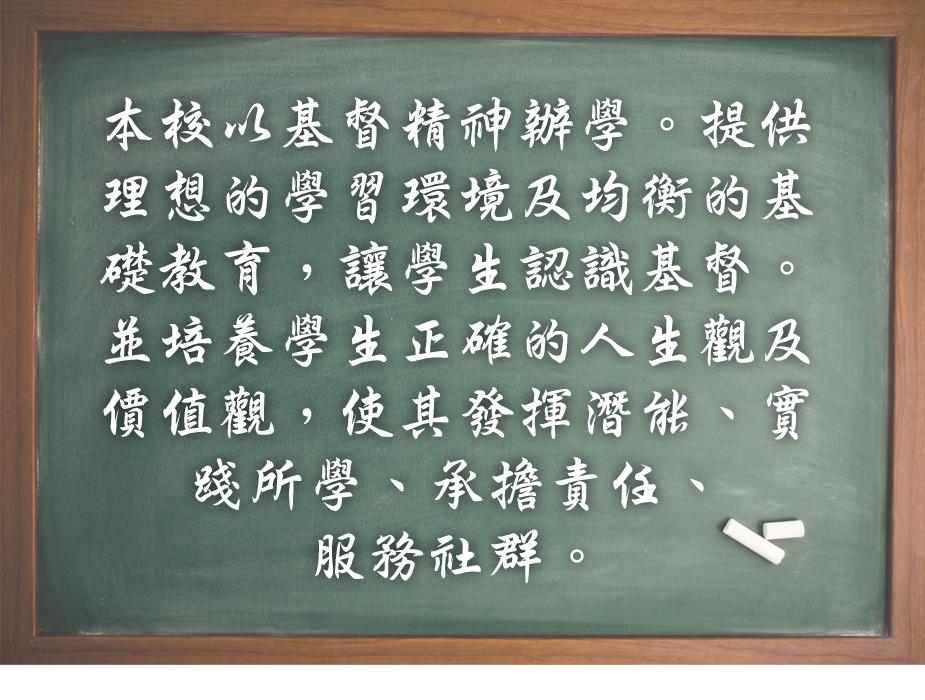 本校以基督精神辦學。提供
理想的學習環境及均衡的基
礎教育，讓學生認識基督。
並培養學生正確的人生觀及
價值觀，使其發揮潛能、實
踐所學、承擔責任、
服務社群。